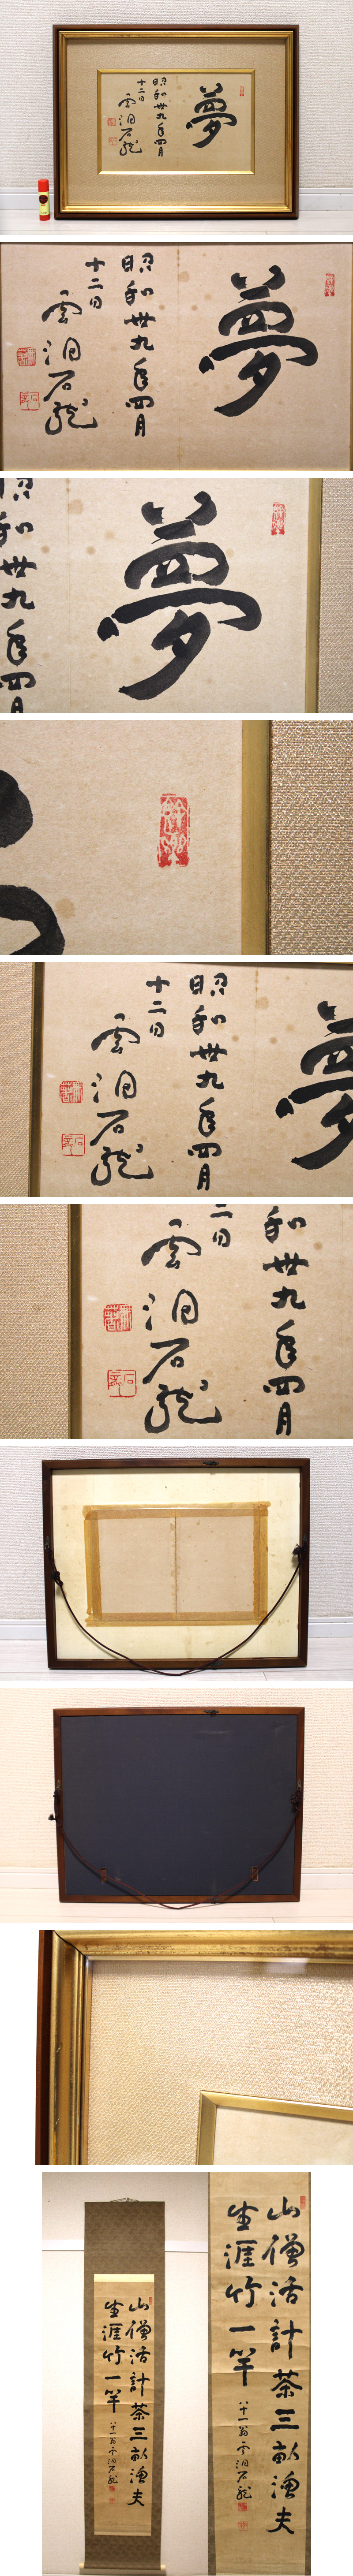 夢
昭和卅九年四月
十二日
雲洞石龍
夢
昭和卅九年四月
十二日
雲洞石龍
夢
和卅九年四月
夢
昭和卅九年四月
十二日
雲洞石龍
和卅九年四月
二日
雲洞石龍
山僧活計茶三畝漁夫
生涯竹一竿
八十一翁雲洞石龍
山僧活計茶三畝漁夫
生涯竹一竿
八十一翁雲洞石龍